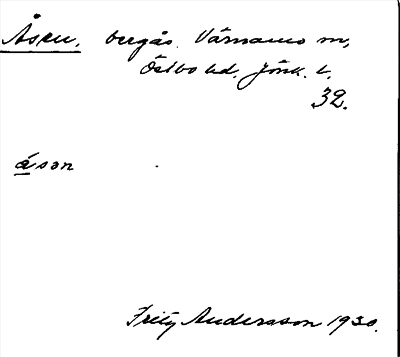 Åsen, bergås. Värnamo sn,
Östbo hd. Jönk. l.
32.
åsən
Fritz Andersson 1930.